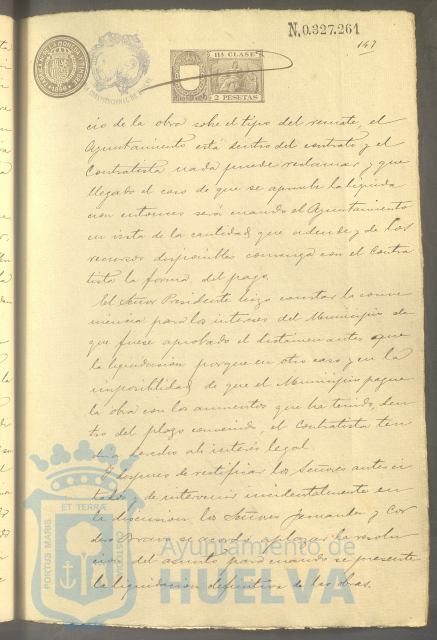 N.0.327.261
147
11ª CLASE
2 PESETAS
cio de la obra sobre el tipo del remate, el
Ayuntamiento está dentro del contrato y el
Contratista nada puede reclamar, y que
llegado el caso de que se apruebe la liquida
cion entonces será cuando el Ayuntamiento
en vista de la cantidad que adeude y de los
recursos disponibles convenga con el Contra
tista la forma del pago.
El Señor Presidente hizo constar la conve
niencia para los intereses del Municipio de
que fuese aprobado el dictámen antes que
la liquidacion porque en otro caso y en la
imposibilidad de que el Municipio pague
la obra con los aumentos que ha tenido, den
tro del plazo convenido, el Contratista ten
derecho al interés legal.
Despues de rectificar los Señores antes ci
tados y de intervenir incidentalmente en
la discusion los Señores Fernandez y Cor
dero Bravo se acordó aplazar la resolu
cion del asunto para cuando se presente
la liquidacion definitiva de las obras.
PORTUS MARIS
ET TERRÆ
CUSTODIA
Ayuntamiento de
HUELVA